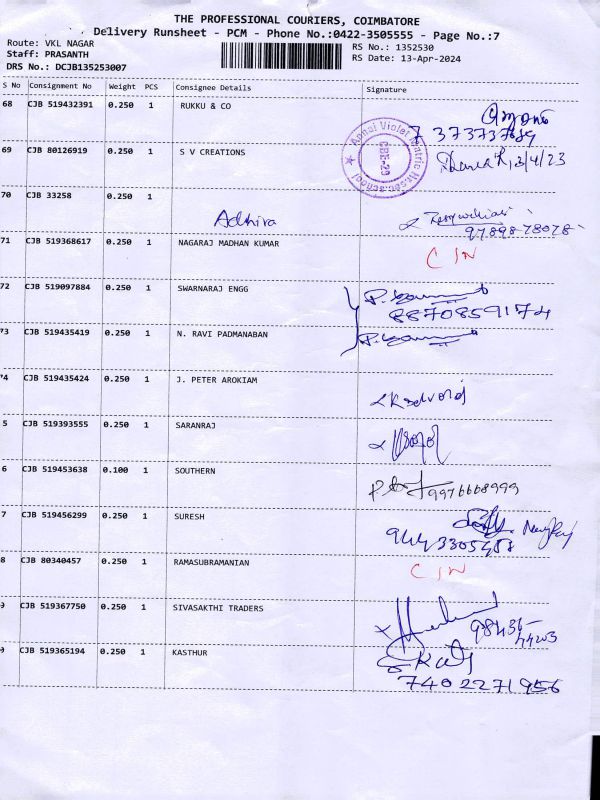 THE PROFESSIONAL COURIERS, COIMBATORE
Delivery Runsheet - PCM - Phone No.:0422-3505555 - Page No.:7
Route: VKL NAGAR
RS No.: 1352530
Staff: PRASANTH
RS Date: 13-Apr-2024
DRS No.: DCJB135253007
S No Consignment No Weight PCS Consignee Details Signature
68 CJB 519432391 0.250 1 RUKKU & CO
69 CJB 80126919 0.250 1 S V CREATIONS
70 CJB 33258 0.250 1
Adhira
9789878078
71 CJB 519368617 0.250 1 NAGARAJ MADHAN KUMAR
CIN
72 CJB 519097884 0.250 1 SWARNARAJ ENGG
8870859174
73 CJB 519435419 0.250 1 N. RAVI PADMANABAN
74 CJB 519435424 0.250 1 J. PETER AROKIAM
5 CJB 519393555 0.250 1 SARANRAJ
6 CJB 519453638 0.100 1 SOUTHERN
9976668999
7 CJB 519456299 0.250 1 SURESH
8 CJB 80340457 0.250 1 RAMASUBRAMANIAN
CIN
9 CJB 519367750 0.250 1 SIVASAKTHI TRADERS
0 CJB 519365194 0.250 1 KASTHUR
7402271956